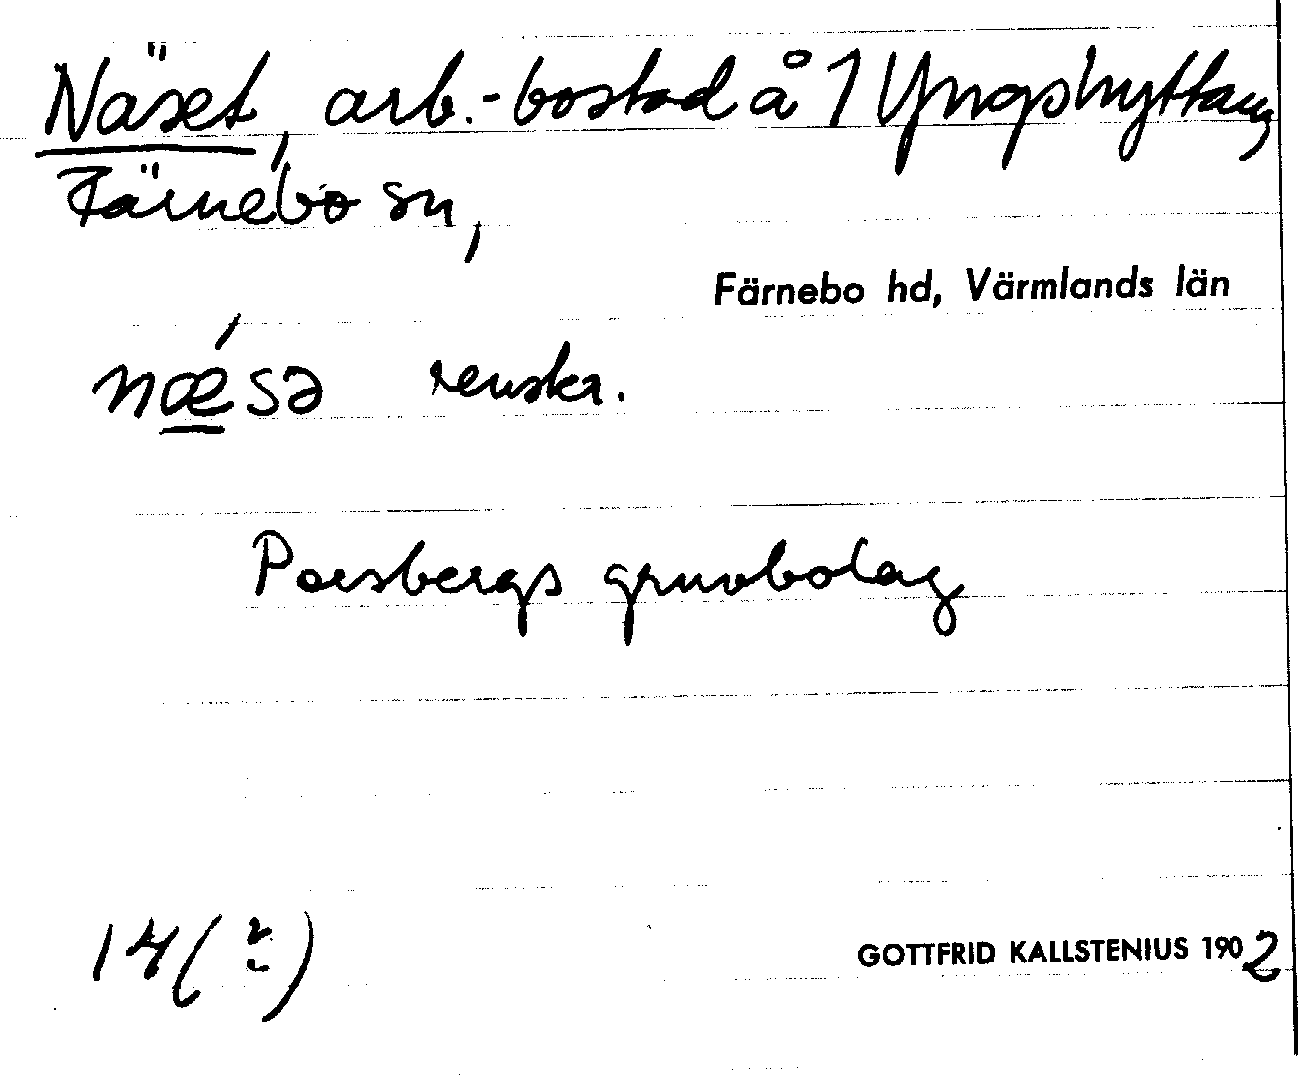 Näset, arb.-bostad å 1 Yngshyttan,
Färnebo sn,
Färnebo hd, Värmlands län
nǽsə renskr.
Persbergs gruvbolag
14(
GOTTFRID KALLSTENIUS 1902